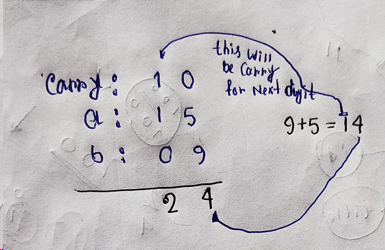 this will
be carry
for next digit
carry: 1 0
a: 1 5
9+5=14
b: 0 9
2 4